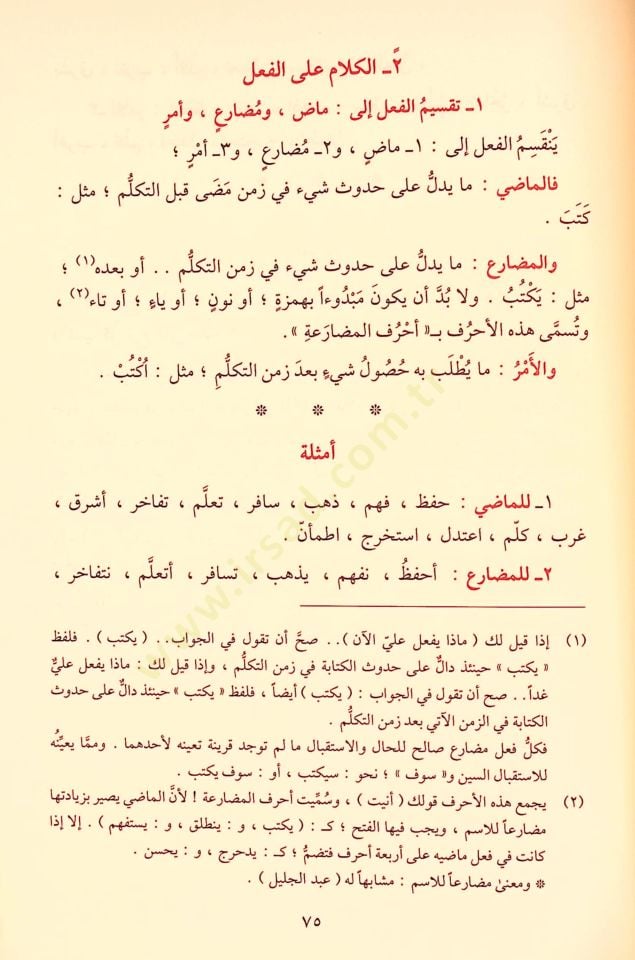 ٢ً ـ الكلام على الفعل
١ـ تقسيمُ الفعل إلى : ماض ، ومُضارعٍ ، وأمرٍ
يَنْقَسِمُ الفعل إلى : ١ـ ماضٍ ، و٢ـ مُضارعٍ ، و٣ـ أمْرٍ ؛
فالماضي : ما يدلُّ على حدوث شيء في زمن مَضَى قبل التكلُّم ؛ مثل :
كَتَبَ .
والمضارع : ما يدلُّ على حدوث شيء في زمن التكلُّم .. أو بعده(١) ؛
مثل : يَكْتُبُ . ولا بُدَّ أن يكونَ مَبْدُوءاً بهمزةٍ ؛ أو نونٍ ؛ أو ياءٍ ؛ أو تاء(٢) ،
وتُسمَّى هذه الأحرُف بـ« أحْرُف المضارَعةِ ».
والأَمْرُ : ما يُطْلَب به حُصُولُ شيءٍ بعدَ زمن التكلُّمِ ؛ مثل : اُكْتُبْ .
* * *
أمثلة
١ـ للماضي : حفظ ، فهم ، ذهب ، سافر ، تعلَّم ، تفاخر ، أشرق ،
غرب ، كلّم ، اعتدل ، استخرج ، اطمأنّ .
٢ـ للمضارع : أحفظُ ، نفهم ، يذهب ، تسافر ، أتعلَّم ، نتفاخر ،
(١) إذا قيل لك ( ماذا يفعل عليّ الآن ).. صحَّ أن تقول في الجواب.. ( يكتب ) . فلفظ
« يكتب » حينئذ دالٌّ على حدوث الكتابة في زمن التكلُّم ، وإذا قيل لك : ماذا يفعل عليٌّ
غداً.. صح أن تقول في الجواب : ( يكتب ) أيضاً ، فلفظ « يكتب » حينئذ دالٌّ على حدوث
الكتابة في الزمن الآتي بعد زمن التكلُّم .
فكلُّ فعل مضارع صالح للحال والاستقبال ما لم توجد قرينة تعينه لأحدهما . وممَّا يعيِّنُه
للاستقبال السين و« سوف » ؛ نحو : سيكتب ، أو : سوف يكتب .
(٢) يجمع هذه الأحرف قولك ( أنيت ) ، وسُمِّيت أحرف المضارعة ! لأنَّ الماضي يصير بزيادتها
مضارعاً للاسم ، ويجب فيها الفتح ؛ كـ : ( يكتب ، و : ينطلق ، و : يستفهم ) . إلا إذا
كانت في فعل ماضيه على أربعة أحرف فتضمُّ ؛ كـ : يدحرج ، و : يحسن .
* ومعنىٰ مضارعاً للاسم : مشابهاً له ( عبد الجليل ) .
٧٥
www.irsad.com.tr